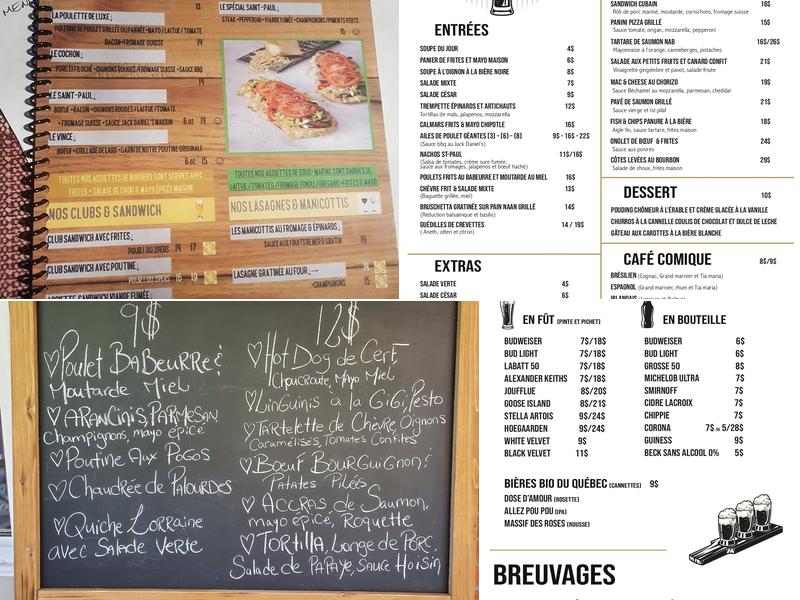 MENU
LA POULETTE DE LUXE 13
POITRINE DE POULET GRILLÉE OU PANNÉE • MAYO / LAITUE / TOMATE
BACON • FROMAGE SUISSE 14
LE COCHON
PORC EFFILOCHÉ • OIGNONS ROUGES / FROMAGE SUISSE • SAUCE BBQ
14
LE SAINT-PAUL
BOEUF • BACON • OIGNONS ROUGES / LAITUE / TOMATE
• FROMAGE SUISSE • SAUCE JACK DANIEL'S MAISON 6 oz 14
LE VINCE
BOEUF • GRILLADE DE LARD • GARNI DE NOTRE POUTINE ORIGINALE
6 oz 15
TOUTES NOS ASSIETTES DE BURGERS SONT SERVIES AVEC
FRITES • SALADE DE CHOU & MAYO ÉPICÉE MAISON
NOS CLUBS & SANDWICH
CLUB SANDWICH AVEC FRITES
POUR 1 OU 2 PERS 14 17
CLUB SANDWICH AVEC POUTINE
POUR 1 OU 2 PERS 16 19
ASSIETTE SANDWICH VIANDE FUMÉE
LE SPÉCIAL SAINT-PAUL
STEAK • PEPPERONI • VIANDE FUMÉE • CHAMPIGNONS / PIMENTS VERTS
15
TOUTES NOS ASSIETTES DE SOUS-MARINS SONT GARNIES DE
LAITUE / TOMATES / FROMAGE FONDU / OREGANO • FRITES & MAYO
NOS LASAGNES & MANICOTTIS
LES MANICOTTIS AU FROMAGE & ÉPINARDS
SAUCE AUX FRUITS DE MER & GRATIN 19
LASAGNE GRATINÉE AU FOUR 14
• CHAMPIGNONS 15
ENTRÉES
SOUPE DU JOUR 4$
PANIER DE FRITES ET MAYO MAISON 6$
SOUPE À L'OIGNON À LA BIÈRE NOIRE 8$
SALADE MIXTE 7$
SALADE CÉSAR 9$
TREMPETTE ÉPINARDS ET ARTICHAUTS 12$
Tortillas de maïs, jalapenos, mozzarella
CALMARS FRITS & MAYO CHIPOTLE 16$
AILES DE POULET GÉANTES (3) - (6) - (8) 9$ - 16$ - 22$
(Sauce bbq au Jack Daniel's)
NACHOS ST-PAUL 11$/16$
(Salsa de tomates, crème sure fumée,
sauce aux fromages, jalapenos et bœuf haché)
POULETS FRITS AU BABEURRE ET MOUTARDE AU MIEL 16$
CHÈVRE FRIT & SALADE MIXTE 13$
(Baguette grillée, miel)
BRUSCHETTA GRATINÉE SUR PAIN NAAN GRILLÉ 14$
(Réduction balsamique et basilic)
GUÉDILLES DE CREVETTES 14 / 19$
( Aneth, céleri et citron)
EXTRAS
SALADE VERTE 4$
SALADE CÉSAR 6$
SANDWICH CUBAIN 16$
Rôti de porc mariné, moutarde, cornichons, fromage suisse
PANINI PIZZA GRILLÉ 15$
Sauce tomate, origan, mozzarella, pepperoni
TARTARE DE SAUMON NAB 16$/26$
Mayonnaise à l'orange, canneberges, pistaches
SALADE AUX PETITS FRUITS ET CANARD CONFIT 21$
Vinaigrette gingembre et pavot, salade frisée
MAC & CHEESE AU CHORIZO 19$
Sauce Béchamel au mozzarella, parmesan, cheddar
PAVÉ DE SAUMON GRILLÉ 21$
Sauce vierge et riz pilaf
FISH & CHIPS PANURE À LA BIÈRE 18$
Aiglefin, sauce tartare, frites maison
ONGLET DE BŒUF & FRITES 24$
Sauce aux poivres
CÔTES LEVÉES AU BOURBON 29$
Salade de choux, frites maison
DESSERT 10$
POUDING CHÔMEUR À L'ÉRABLE ET CRÈME GLACÉE À LA VANILLE
CHURROS À LA CANNELLE COULIS DE CHOCOLAT ET DULCE DE LECHE
GÂTEAU AUX CAROTTES À LA BIÈRE BLANCHE
CAFÉ COMIQUE 8$/9$
BRÉSILIEN (Cognac, Grand marnier et Tia maria)
ESPAGNOL (Grand marnier, rhum et Tia maria)
9$
♡ Poulet BABEURRE &
Moutarde Miel
♡ ARANCINIS, PARMESAN
Champignons, mayo épicé
♡ Poutine Aux POGOS
♡ Chaudrée de PALOURDES
♡ Quiche Lorraine
avec Salade Verte
12$
♡ Hot Dog de Cerf
Choucroute, Mayo Miel
♡ Linguinis à la GiGi, Pesto
♡ Tartelette de Chèvre, Oignons
Caramélisés, Tomates Confites
♡ Bœuf Bourguignon &
Patates Pilées
♡ Accras de Saumon,
mayo épicé, Roquette
♡ TORTILLA, Longe de PORC,
Salade de PAPAYE, Sauce Hoisin
EN FÛT (PINTE ET PICHET)
BUDWEISER 7$/18$
BUD LIGHT 7$/18$
LABATT 50 7$/18$
ALEXANDER KEITHS 7$/18$
JOUFFLUE 8$/20$
GOOSE ISLAND 8$/21$
STELLA ARTOIS 9$/24$
HOEGAARDEN 9$/24$
WHITE VELVET 9$
BLACK VELVET 11$
EN BOUTEILLE
BUDWEISER 6$
BUD LIGHT 6$
GROSSE 50 8$
MICHELOB ULTRA 7$
SMIRNOFF 7$
CIDRE LACROIX 7$
CHIPPIE 7$
CORONA 7$ 5/28$
GUINESS 9$
BECK SANS ALCOOL 0% 5$
BIÈRES BIO DU QUÉBEC (CANNETTES) 9$
DOSE D'AMOUR (ROSETTE)
ALLEZ POU POU (IPA)
MASSIF DES ROSES (ROUSSE)
BREUVAGES